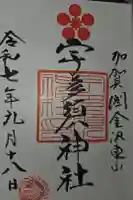 加賀国金沢東山
宇多須神社
令和七年九月十八日